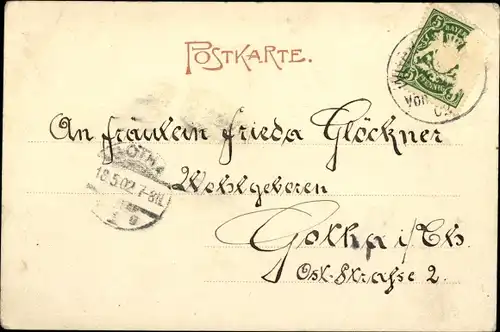 POSTKARTE.
5 BAYERN 5
PFENNIG
An Fräulein Frieda Glöckner
GOTHA
18.5.02. 7-8N.
Wohlgeboren
Gotha i/Th.
Ost-Straſse 2.